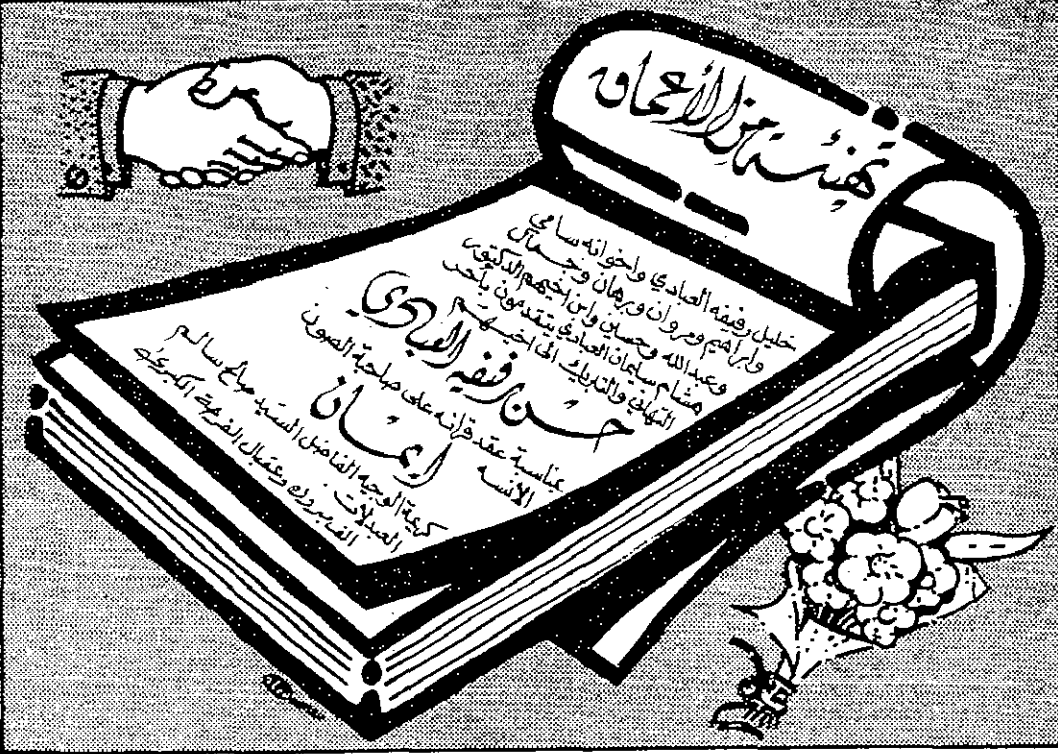 تهنئة من الأعماق
خليل رفيفه العبادي واخوانه سامي
وابراهيم ومروان وبرهان وجمال
وعبدالله وحسين وابن اخيهم الدكتور
هشام سليمان العبادي يتقدمون بأحر
التهاني والتبريك الى اخيهم
حسن رفيفه العبادي
بمناسبة عقد قرانه على صاحبة الصون
الآنسه ايمان
كريمة الوجيه الفاضل السيد صالح سالم
العبدلات
الف مبروك وعقبال الفرحة الكبرى